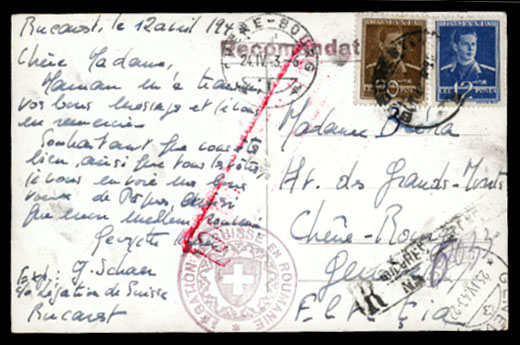 Bucarest, le 12 avril 194
Chère Madame,
Maman m'a transmis
vos bons messages et je vous
en remercie.
Souhaitant que vous
bien, ainsi que tous les vôtres,
je vous envoie mes bons
voeux de Pâques,
que mon meilleur souvenir
Georgette
Exp: G. Schaer
c/o Légation de Suisse
Bucarest
Recommandat
CHÊNE-BOURG
24.IV.43.
ROMANIA
LEI POSTA
ROMANIA
12
LEI POSTA
Madame
Av. des Grands-Monts
Chêne-Bourg
Genève
Elveţia
LEGATION DE SUISSE EN ROUMANIE
R
BUCUREŞTI
No
GENEVE